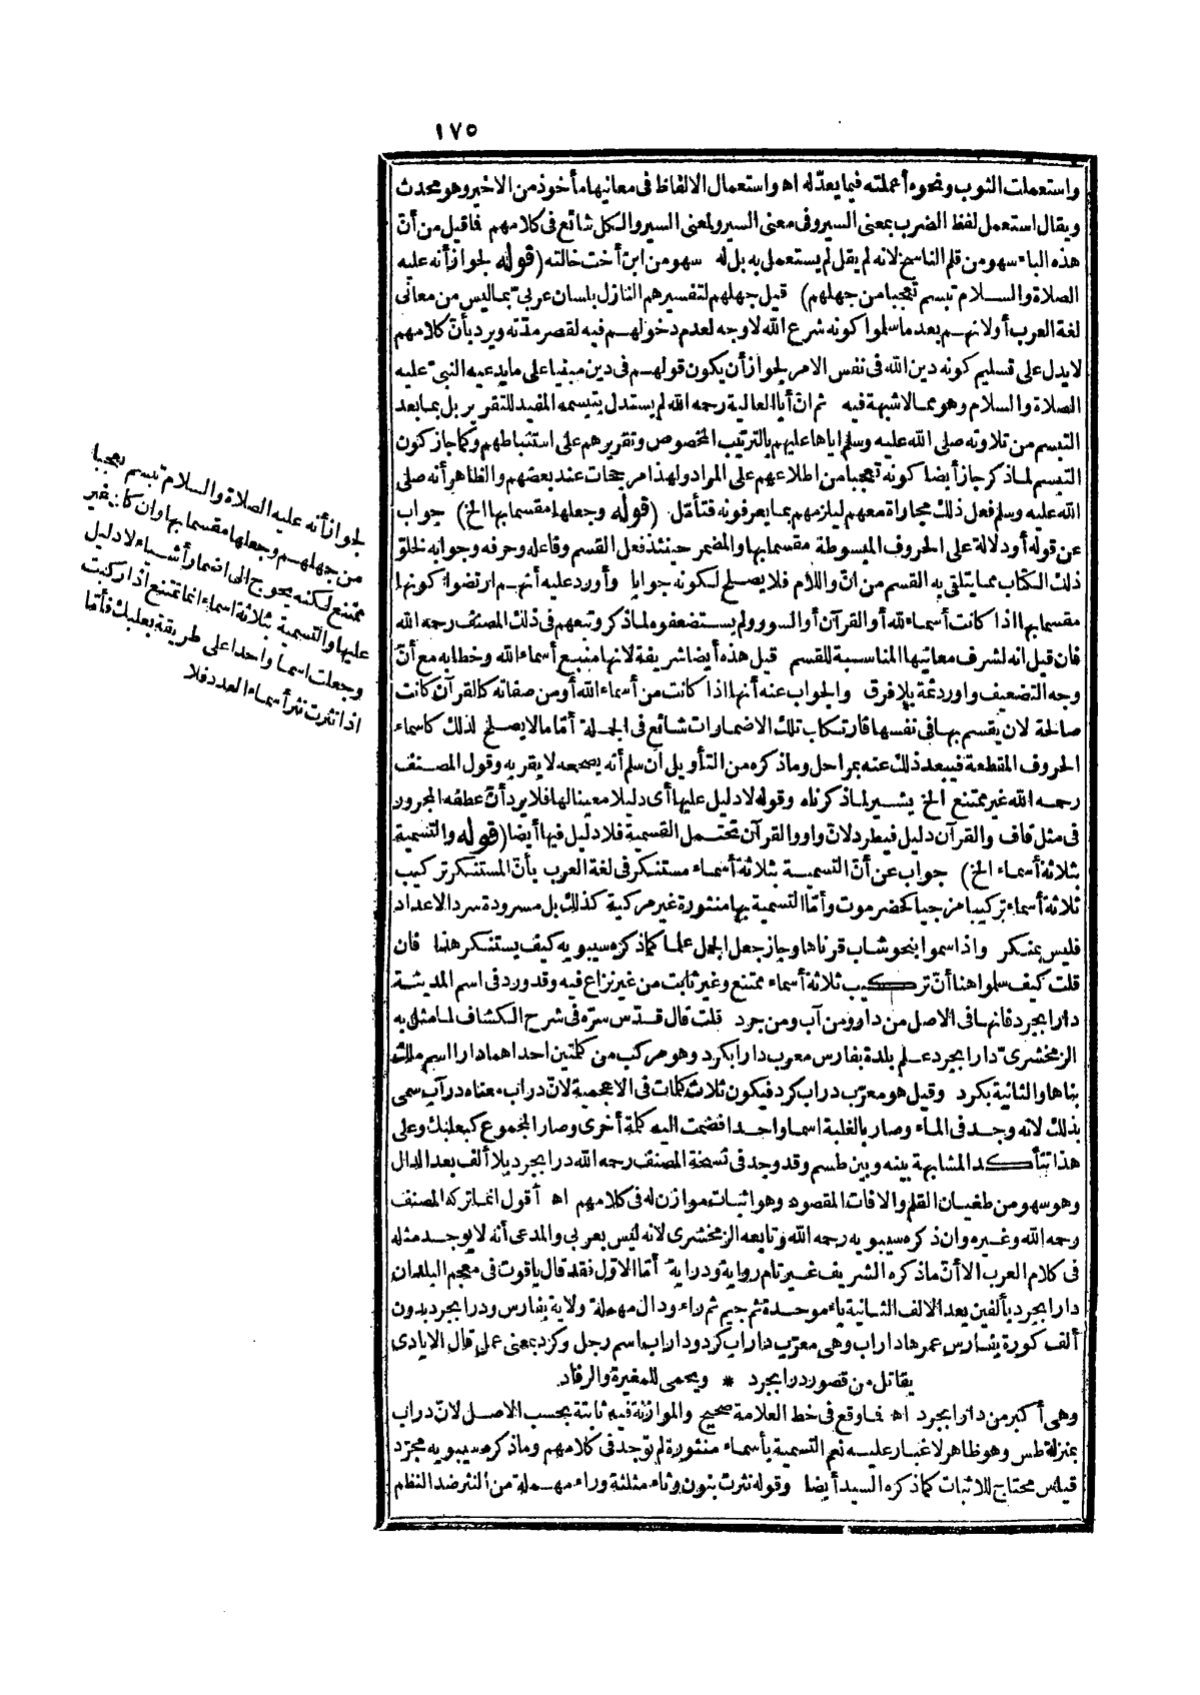 ١٧٥
واستعملت الثوب ونحوه أعملته فيما يعدّ له اه واستعمال الالفاظ فى معانيها مأخوذ من الاخير وهو محدث
ويقال استعمل لفظ الضرب بمعنى السير وفى معنى السير ولمعنى السير والكل شائع فى كلامهم فاقيل من أنّ
هذه الباء سهو من قلم الناسخ لانه لم يقل لم يستعمل به بل له سهو من ابن أخت خالته (قوله لجواز أنه عليه
الصلاة والسلام تبسم تعجبا من جهلهم) قيل جهلهم لتفسيرهم النازل بلسان عربىّ بما ليس من معانى
لغة العرب أولانهم بعد ما سلموا كونه شرع الله لا وجه لعدم دخولهم فيه لقصر مدّته ويرد بأنّ كلامهم
لايدل على تسليم كونه دين الله فى نفس الامر لجواز أن يكون قولهم فى دين مبنيا على مايدعيه النبىّ عليه
الصلاة والسلام وهو مما لاشبهة فيه ثم انّ أبا العالية رحمه الله لم يستدل بتبسمه المفيد للتقرير بل بما بعد
التبسم من تلاوته صلى الله عليه وسلم اياها عليهم بالترتيب المخصوص وتقريرهم على استنباطهم وكما جاز كون
التبسم لما ذكر جاز أيضا كونه تعجبا من اطلاعهم على المراد ولهذا مرجحات عند بعضهم والظاهر أنه صلى
الله عليه وسلم فعل ذلك مجاراة معهم ليلزمهم بما يعرفونه فتأمّل (قوله وجعلها مقسما بها الخ) جواب
عن قوله أودلالة على الحروف المبسوطة مقسما بها والمضمر حينئذ فعل القسم وفاعله وحرفه وجوابه لخلق
ذلك الكتاب مما يتلقى به القسم من انّ واللام فلا يصلح لكونه جوابا وأورد عليه أنهم ارتضوا كونها
مقسما بها اذا كانت أسماء لله أو القرآن أو السور ولم يستضعفوه لما ذكر وتبعهم فى ذلك المصنف رحمه الله
فان قيل انه لشرف معانيها المناسبة للقسم قيل هذه أيضا شريفة لانها منبع أسماء الله وخطابه مع أنّ
وجه التضعيف وارد ثمة بلا فرق والجواب عنه أنها اذا كانت من أسماء الله أو من صفاته كالقرآن كانت
صالحة لان يقسم بها فى نفسها فارتكاب تلك الاضمارات شائع فى الجملة أمّا مالا يصلح لذلك كاسماء
الحروف المقطعة فيبعد ذلك عنه بمراحل وماذكره من التأويل ان سلم أنه يصححه لا يقربه وقول المصنف
رحمه الله غير ممتنع الخ يشير لما ذكرناه وقوله لا دليل عليها أى دليلا معينا لها فلا يرد أنّ عطفه المجرور
فى مثل قاف والقرآن دليل فيطرد لانّ واو والقرآن تحتمل القسمية فلا دليل فيها أيضا (قوله والتسمية
بثلاثة أسماء الخ) جواب عن أنّ التسمية بثلاثة أسماء مستنكر فى لغة العرب بأنّ المستنكر تركيب
ثلاثة أسماء تركيبا مزجيا كحضرموت وأمّا التسمية بها منثورة غير مركبة كذلك بل مسرودة سرد الاعداد
فليس بمنكر واذا سموا بنحو شاب قرناها وجاز جعل الجمل علما كما ذكره سيبويه كيف يستنكر هذا فان
قلت كيف سلموا هنا أنّ تركيب ثلاثة أسماء ممتنع وغير ثابت من غير نزاع فيه وقد ورد فى اسم المدينة
دارابجرد فانها فى الاصل من دار ومن آب ومن جرد قلت قال قدّس سرّه فى شرح الكشاف لما مثل به
الزمخشرىّ دارابجرد علم بلدة بفارس معرب دارابكرد وهو مركب من كلمتين احداهما دارا اسم ملك
بناها والثانية بكرد وقيل هو معرّب دراب كرد فيكون ثلاث كلمات فى الاعجمية لانّ دراب معناه درآب سمى
بذلك لانه وجد فى الماء وصار بالغلبة اسما واحدا فضمت اليه كلمة أخرى وصار المجموع كبعلبك وعلى
هذا تتأكد المشابهة بينه وبين طسم وقد وجد فى نسخة المصنف رحمه الله درابجرد بلا ألف بعد الدال
وهو سهو من طغيان القلم والا فات المقصود وهو اثبات موازن له فى كلامهم اه أقول انما تركه المصنف
رحمه الله وغيره وان ذكره سيبويه رحمه الله وتابعه الزمخشرى لانه ليس بعربى والمدعى أنه لا يوجد مثله
فى كلام العرب الا أنّ ماذكره الشريف غير تام رواية ودراية أمّا الاوّل فقد قال ياقوت فى معجم البلدان
دارابجرد بألفين بعد الالف الثانية باء موحدة ثم جيم ثم راء ودال مهملة ولاية بفارس ودرابجرد بدون
ألف كورة بفارس عمرها داراب وهى معرّب داراب كرد وداراب اسم رجل وكرد بمعنى عمل قال الايادى
يقاتل من قصور درابجرد * ويحمى للمغيرة والرقاد
وهى أكبر من دارابجرد اه فما وقع فى خط العلامة صحيح والموازنة فيه ثابتة بحسب الاصل لانّ دراب
بمنزلة طس وهو ظاهر لاغبار عليه نعم التسمية بأسماء منثورة لم توجد فى كلامهم وماذكره سيبويه مجرّد
قياس محتاج للاثبات كما ذكره السيد أيضا وقوله نثرت بنون وثاء مثلثة وراء مهملة من النثر ضد النظم
لجواز أنه عليه الصلاة والسلام تبسم تعجبا
من جهلهم وجعلها مقسما بها وان كان غير
ممتنع لكنه يحوج الى اضمار أشياء لا دليل
عليها والتسمية بثلاثة أسماء انما تمتنع اذا ركبت
وجعلت اسما واحدا على طريقة بعلبك فأمّا
اذا نثرت نثر أسماء العدد فلا